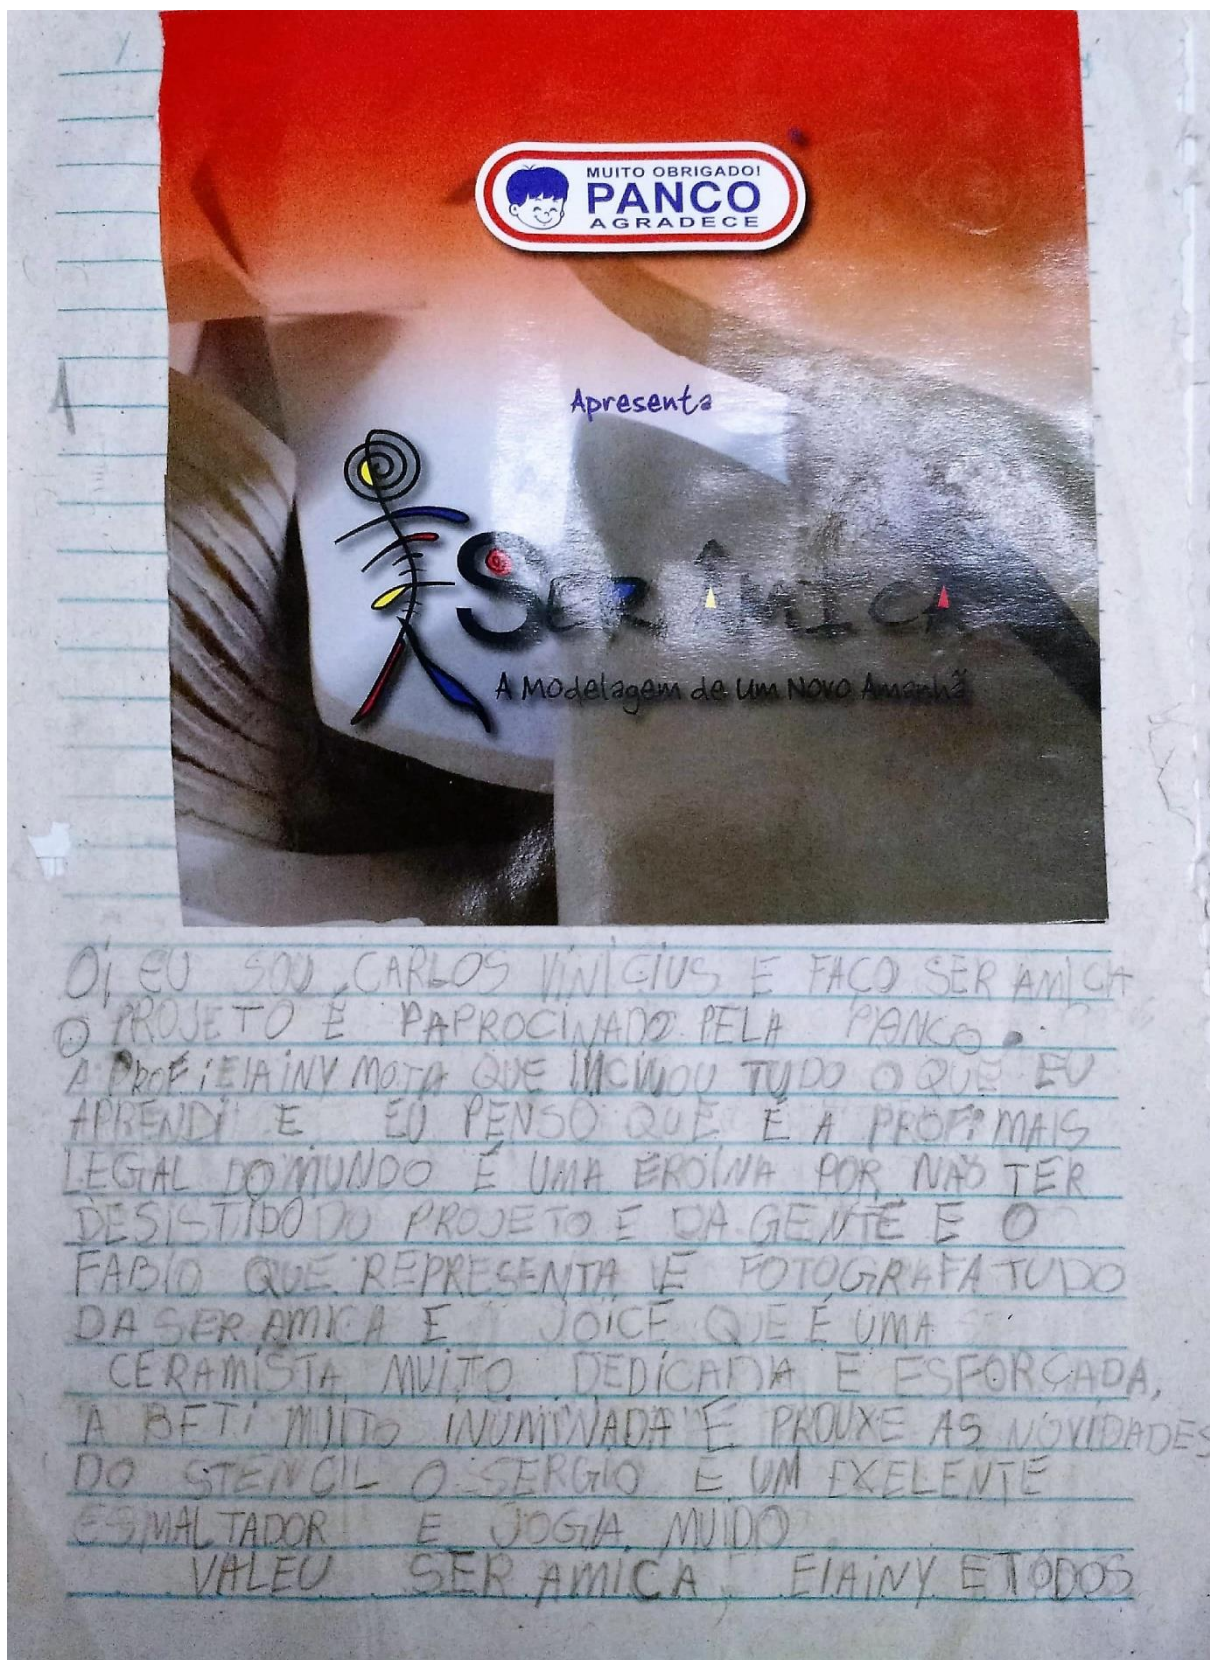 MUITO OBRIGADO!
PANCO
AGRADECE
Apresenta
SER ÂMICA
A Modelagem de Um Novo Amanhã
Oi, EU SOU CARLOS VINICIUS E FAÇO SER AMICA
O PROJETO É PAPROCINADO PELA PANCO.
A PROFi ElAiNY MOTA QUE INCINOU TUDO O QUE EU
APRENDI E EU PENSO QUE É A PROFª MAIS
LEGAL DO MUNDO É UMA EROINA POR NAO TER
DESISTIDO DO PROJETO E DA GENTE E O
FABIO QUE REPRESENTA E FOTOGRAFA TUDO
DA SER AMICA E JOICE QUE É UMA
CERAMISTA MUITO DEDICADA E ESFORÇADA,
A BETI MUITO INUMINADA E PROUXE AS NOVIDADES
DO STENCIL O SERGIO E UM EXELENTE
ESMALTADOR E JOGA MUIDO
VALEU SER AMICA, ElAiNY E TODOS